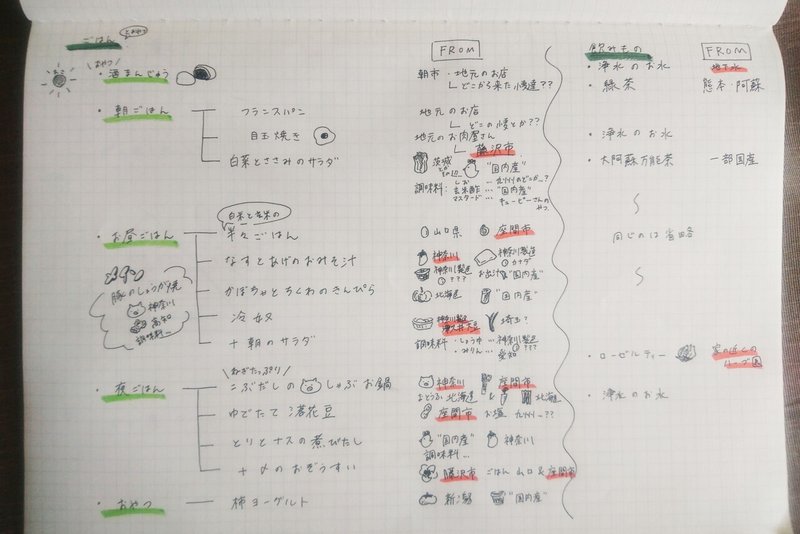 ごはん とおやつ
FROM
飲みもの
FROM
おやつ
・酒まんじゅう
朝市・地元のお店
どこから来た小麦達??
・浄水のお水
地下水
・緑茶
熊本・阿蘇
・朝ごはん
フランスパン
地元のお店
どこの小麦とか??
目玉焼き
地元のお肉屋さん
藤沢市
・浄水のお水
白菜とささみのサラダ
茨城
"国内産"
調味料・しお… 九州のどこか…?
玄米酢… "国内産"
マスタード… キューピーさんのやつ
・大阿蘇万能茶
一部国産
白米と玄米の
・お昼ごはん
半々ごはん
山口県
座間市
同じのは省略
なすとあげのおみそ汁
神奈川
神奈川製造
カナダ
神奈川製造
???
お出汁"国内産"
豚のしょうが焼
神奈川
高知
調味料…
かぼちゃとちくわのきんぴら
北海道
"国内産"
冷奴
神奈川製造
埼玉?
+朝のサラダ
調味料・しょうゆ… 神奈川製造
???
・みりん… 愛知
・ローゼルティー
家の近くの
ねぎたっぷり
・夜ごはん
こぶだしの しゃぶお鍋
神奈川
座間市
北海道
北海道
・浄水のお水
ゆでたて落花豆
座間市
お塩 九州…??
とりとナスの煮びたし
"国内産"
神奈川
調味料…
+〆のおぞうすい
藤沢市
ごはん 山口&座間市
・おやつ
柿ヨーグルト
新潟
"国内産"